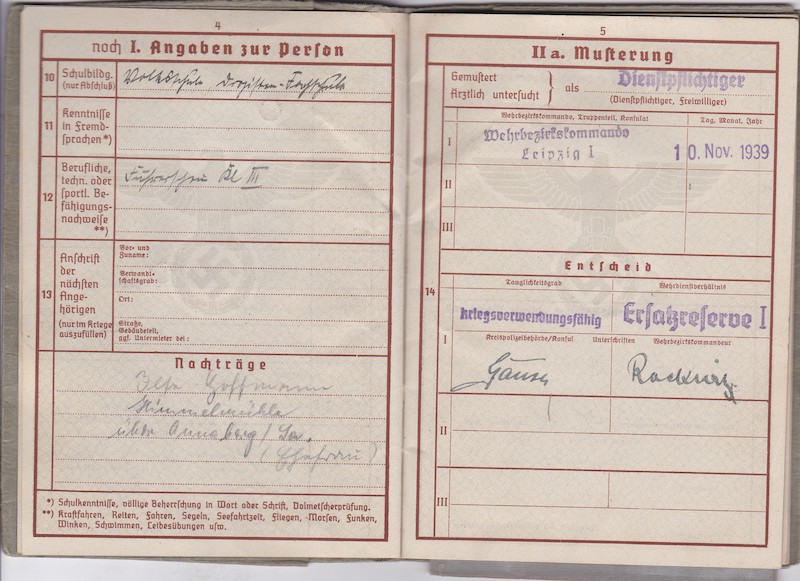 4
noch I. Angaben zur Person
10 Schulbildg. (nur Abschluß)
Volksschule Drogisten-Fachschule
11 Kenntnisse in Fremdsprachen *)
12 Berufliche, techn. oder sportl. Befähigungsnachweise **)
Führerschein Kl III
13 Anschrift der nächsten Angehörigen (nur im Kriege auszufüllen)
Vor- und Zuname:
Verwandtschaftsgrad:
Ort:
Straße, Gebäudeteil, ggf. Untermieter bei:
Nachträge
Ilse Hoffmann
Himmelmühle
über Annaberg / Sa.
(Ehefrau)
*) Schulkenntnisse, völlige Beherrschung in Wort oder Schrift, Dolmetscherprüfung.
**) Kraftfahren, Reiten, Fahren, Segeln, Seefahrtzeit, Fliegen, Morsen, Funken,
Winken, Schwimmen, Leibesübungen usw.
5
II a. Musterung
Gemustert
Ärztlich untersucht } als Dienstpflichtiger
(Dienstpflichtiger, Freiwilliger)
Wehrbezirkskommando, Truppenteil, Konsulat
Tag, Monat, Jahr
I
Wehrbezirkskommando
Leipzig I
10. Nov. 1939
II
III
Entscheid
14
Tauglichkeitsgrad
Wehrdienstverhältnis
kriegsverwendungsfähig
Ersatzreserve I
I
Kreispolizeibehörde/Konsul
Unterschriften
Wehrbezirkskommandeur
II
III